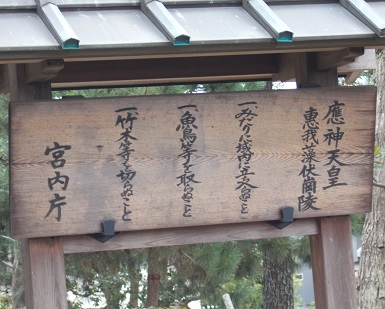 應神天皇
惠我藻伏崗陵
一、みだりに域内に立ち入らぬこと
一、魚鳥等を取らぬこと
一、竹木等を切らぬこと
宮内庁